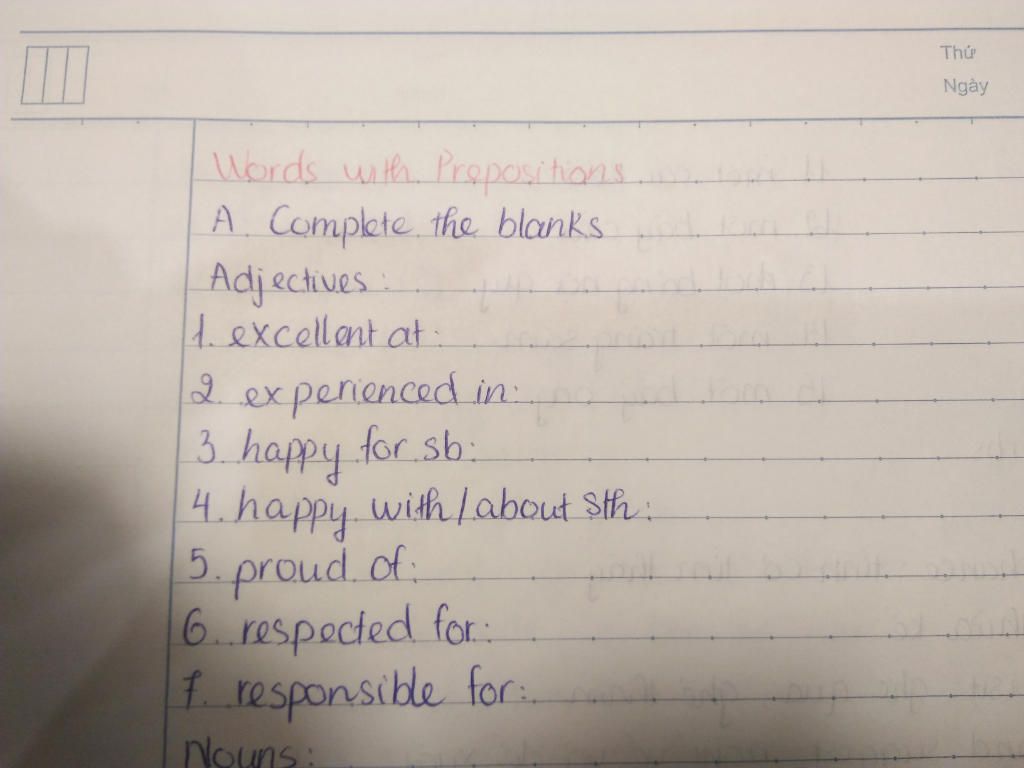 Thứ
Ngày
Words with Prepositions
A. Complete the blanks
Adjectives:
1. excellent at:
2. experienced in:
3. happy for sb:
4. happy with/about sth:
5. proud of:
6. respected for:
7. responsible for:
Nouns: